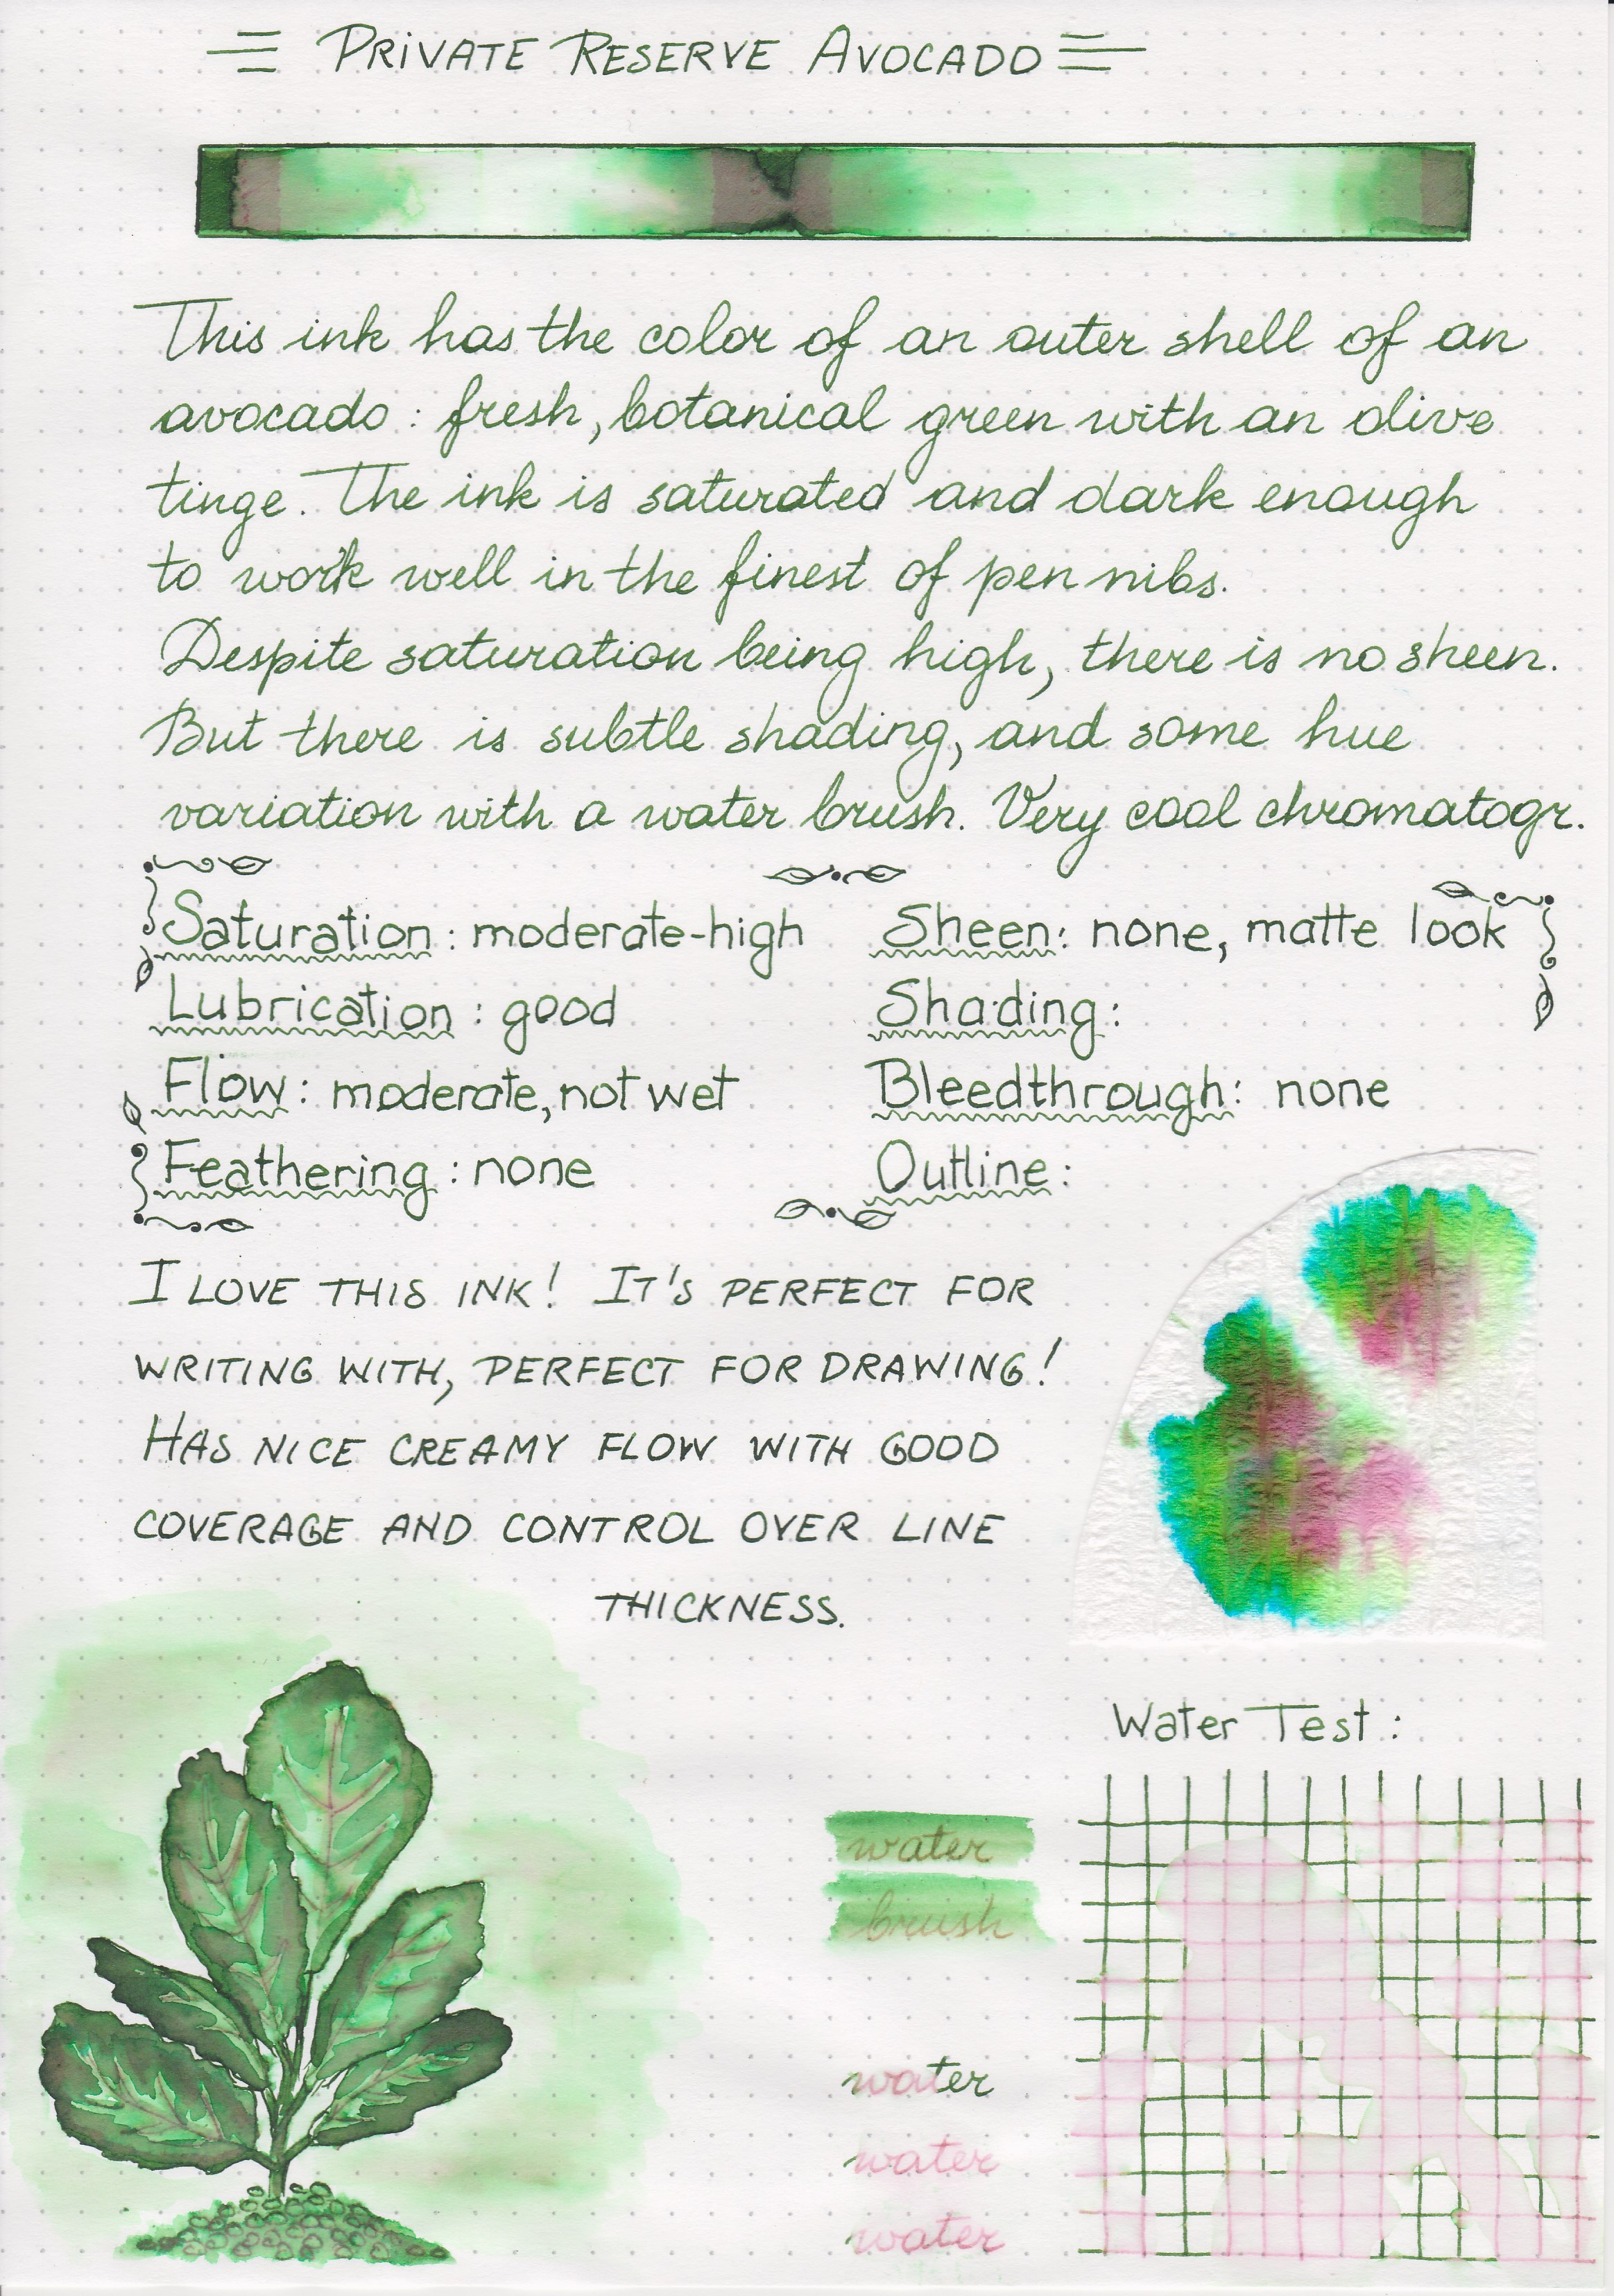 PRIVATE RESERVE AVOCADO
This ink has the color of an outer shell of an
avocado: fresh, botanical green with an olive
tinge. The ink is saturated and dark enough
to work well in the finest of pen nibs.
Despite saturation being high, there is no sheen.
But there is subtle shading, and some hue
variation with a water brush. Very cool chromatogr.
Saturation: moderate-high
Sheen: none, matte look
Lubrication: good
Shading:
Flow: moderate, not wet
Bleedthrough: none
Feathering: none
Outline:
I LOVE THIS INK! IT'S PERFECT FOR
WRITING WITH, PERFECT FOR DRAWING!
HAS NICE CREAMY FLOW WITH GOOD
COVERAGE AND CONTROL OVER LINE
THICKNESS.
Water Test:
water
brush
water
water
water